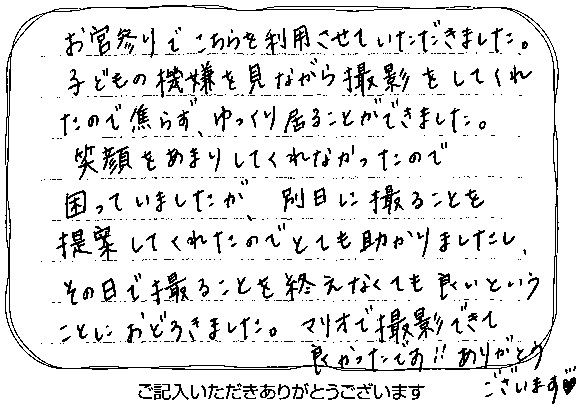 お宮参りでこちらを利用させていただきました。
子どもの機嫌を見ながら撮影をしてくれ
たので焦らず、ゆっくり居ることができました。
笑顔をあまりしてくれなかったので
困っていましたが、別日に撮ることを
提案してくれたのでとても助かりましたし、
その日で撮ることを終えなくても良いという
ことにおどろきました。マリオで撮影できて
良かったです!!ありがとう
ございます♥
ご記入いただきありがとうございます